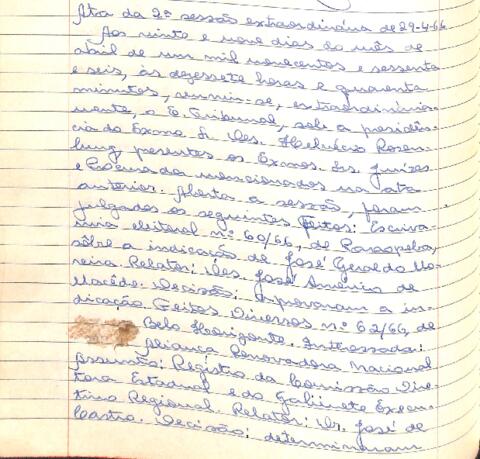 Ata da 2ª sessão extraordinária de 29-4-66
Aos vinte e nove dias do mês de
abril de um mil novecentos e sessenta
e seis, às dezessete horas e quarenta
minutos, reuniu-se, extraordinària-
mente, o E. Tribunal, sob a presidên-
cia do Exmo. Sr. Des. Helvécio Rosen-
burg, presentes os Exmos. Srs. Juízes
e Procurador mencionados na ata
anterior. Aberta a sessão, foram
julgados os seguintes feitos: Escriva-
nia eleitoral nº 60/66, de Paraopeba,
sôbre a indicação de José Geraldo Mo-
reira. Relator: Des. José Américo de
Macêdo. Decisão: Aprovaram a in-
dicação. Feitos Diversos nº 62/66, de
Belo Horizonte. Interessada:
Aliança Renovadora Nacional
Assunto: Registro da Comissão Dire-
tora Estadual e do Gabinete Execu-
tivo Regional. Relator: Dr. José de
Castro. Decisão: determinaram